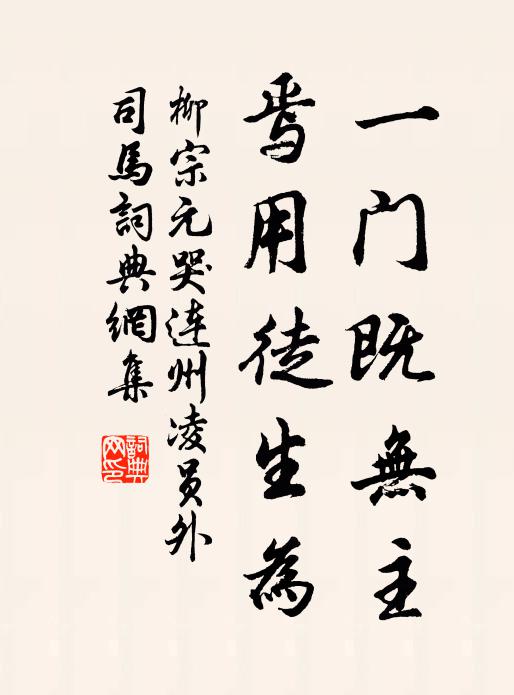 一门既無主
焉用徒生為
柳宗元哭连州凌员外
司馬詞典網集
詞典网印